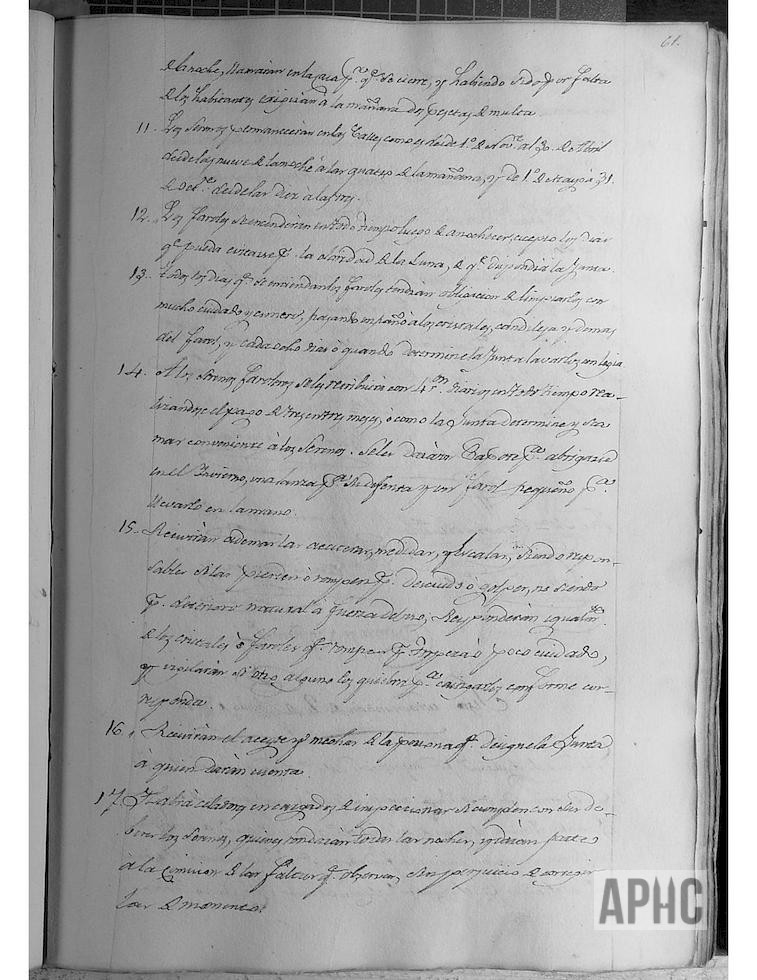 61.
de la noche, llamarán en la casa pª. qº. se cierre, y habiendo sido por falta
de los habitantes exigirán a la mañana dos pesetas de multa.
11. Los Serenos permanecerán en las Calles como es desde 1º. de Novᵉ. al 30. de Abril
desde las nueve de la noche á las quatro de la mañana, y de 1º. de Mayo á 31.
de Octᵉ. desde las diez á las tres.
12. Los faroles se encenderán en todo tiempo luego de anochecer, excepto los dias
qᵉ. pueda escusarse pʳ. la claridad de la Luna, de qᵉ. dispondrá la Junta.
13. Todos los dias qᵉ. se enciendan los faroles tendrán obligacion de limpiarlos con
mucho cuidado y esmero, pasando un paño á los cristales, candileja y demas
del farol, y cada ocho dias ó quando determine la Junta labarlos con legia
14. A los Serenos faroleros se les retribuirá con 4 rˢ. diarios en todo tiempo rea-
lizandose el pago de tres en tres meses, ó como la Junta determine y sea
mas conveniente á los Serenos. Se les dará un Capote pª. abrigarse
en el Invierno, una lanza pª. su defensa y un farol pequeño pª.
llevarlo en la mano.
15. Recivirán ademas las aceiteras, medidas, y Escalas, siendo respon-
sables si las pierden ó rompen pʳ. descuido ó golpes, no siendo
pʳ. deterioro natural á fuerza del uso; Responderán igualmᵗᵉ.
de los cristales ó faroles qᵉ. rompan pʳ. poco cuidado,
y vigilarán si otro alguno los quiebra pª. castigarlos conforme cor-
responda.
16. Recivirán el aceyte y mechas de la persona qᵉ. designe la Junta
á quien darán cuenta.
17. Habrá celadores encargados de inspeccionar si cumplen con sus de-
beres los Serenos, quienes rondarán todas las noches, y darán parte
a la Comision de las faltas qᵉ. observen, sin perjuicio de corregir
las de momento.
APHC